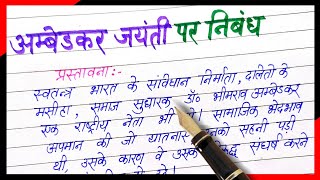 अम्बेडकर जयंती पर निबंध
प्रस्तावना :-
स्वतन्त्र भारत के संविधान निर्माता, दलितों के
मसीहा, समाज सुधारक डॉ० भीमराव अम्बेडकर
एक राष्ट्रीय नेता भी थे। सामाजिक भेदभाव
अपमान की जो यातनाएं उनको सहनी पड़ी
थी, उसके कारण वे उसके विरूद्ध संघर्ष करने